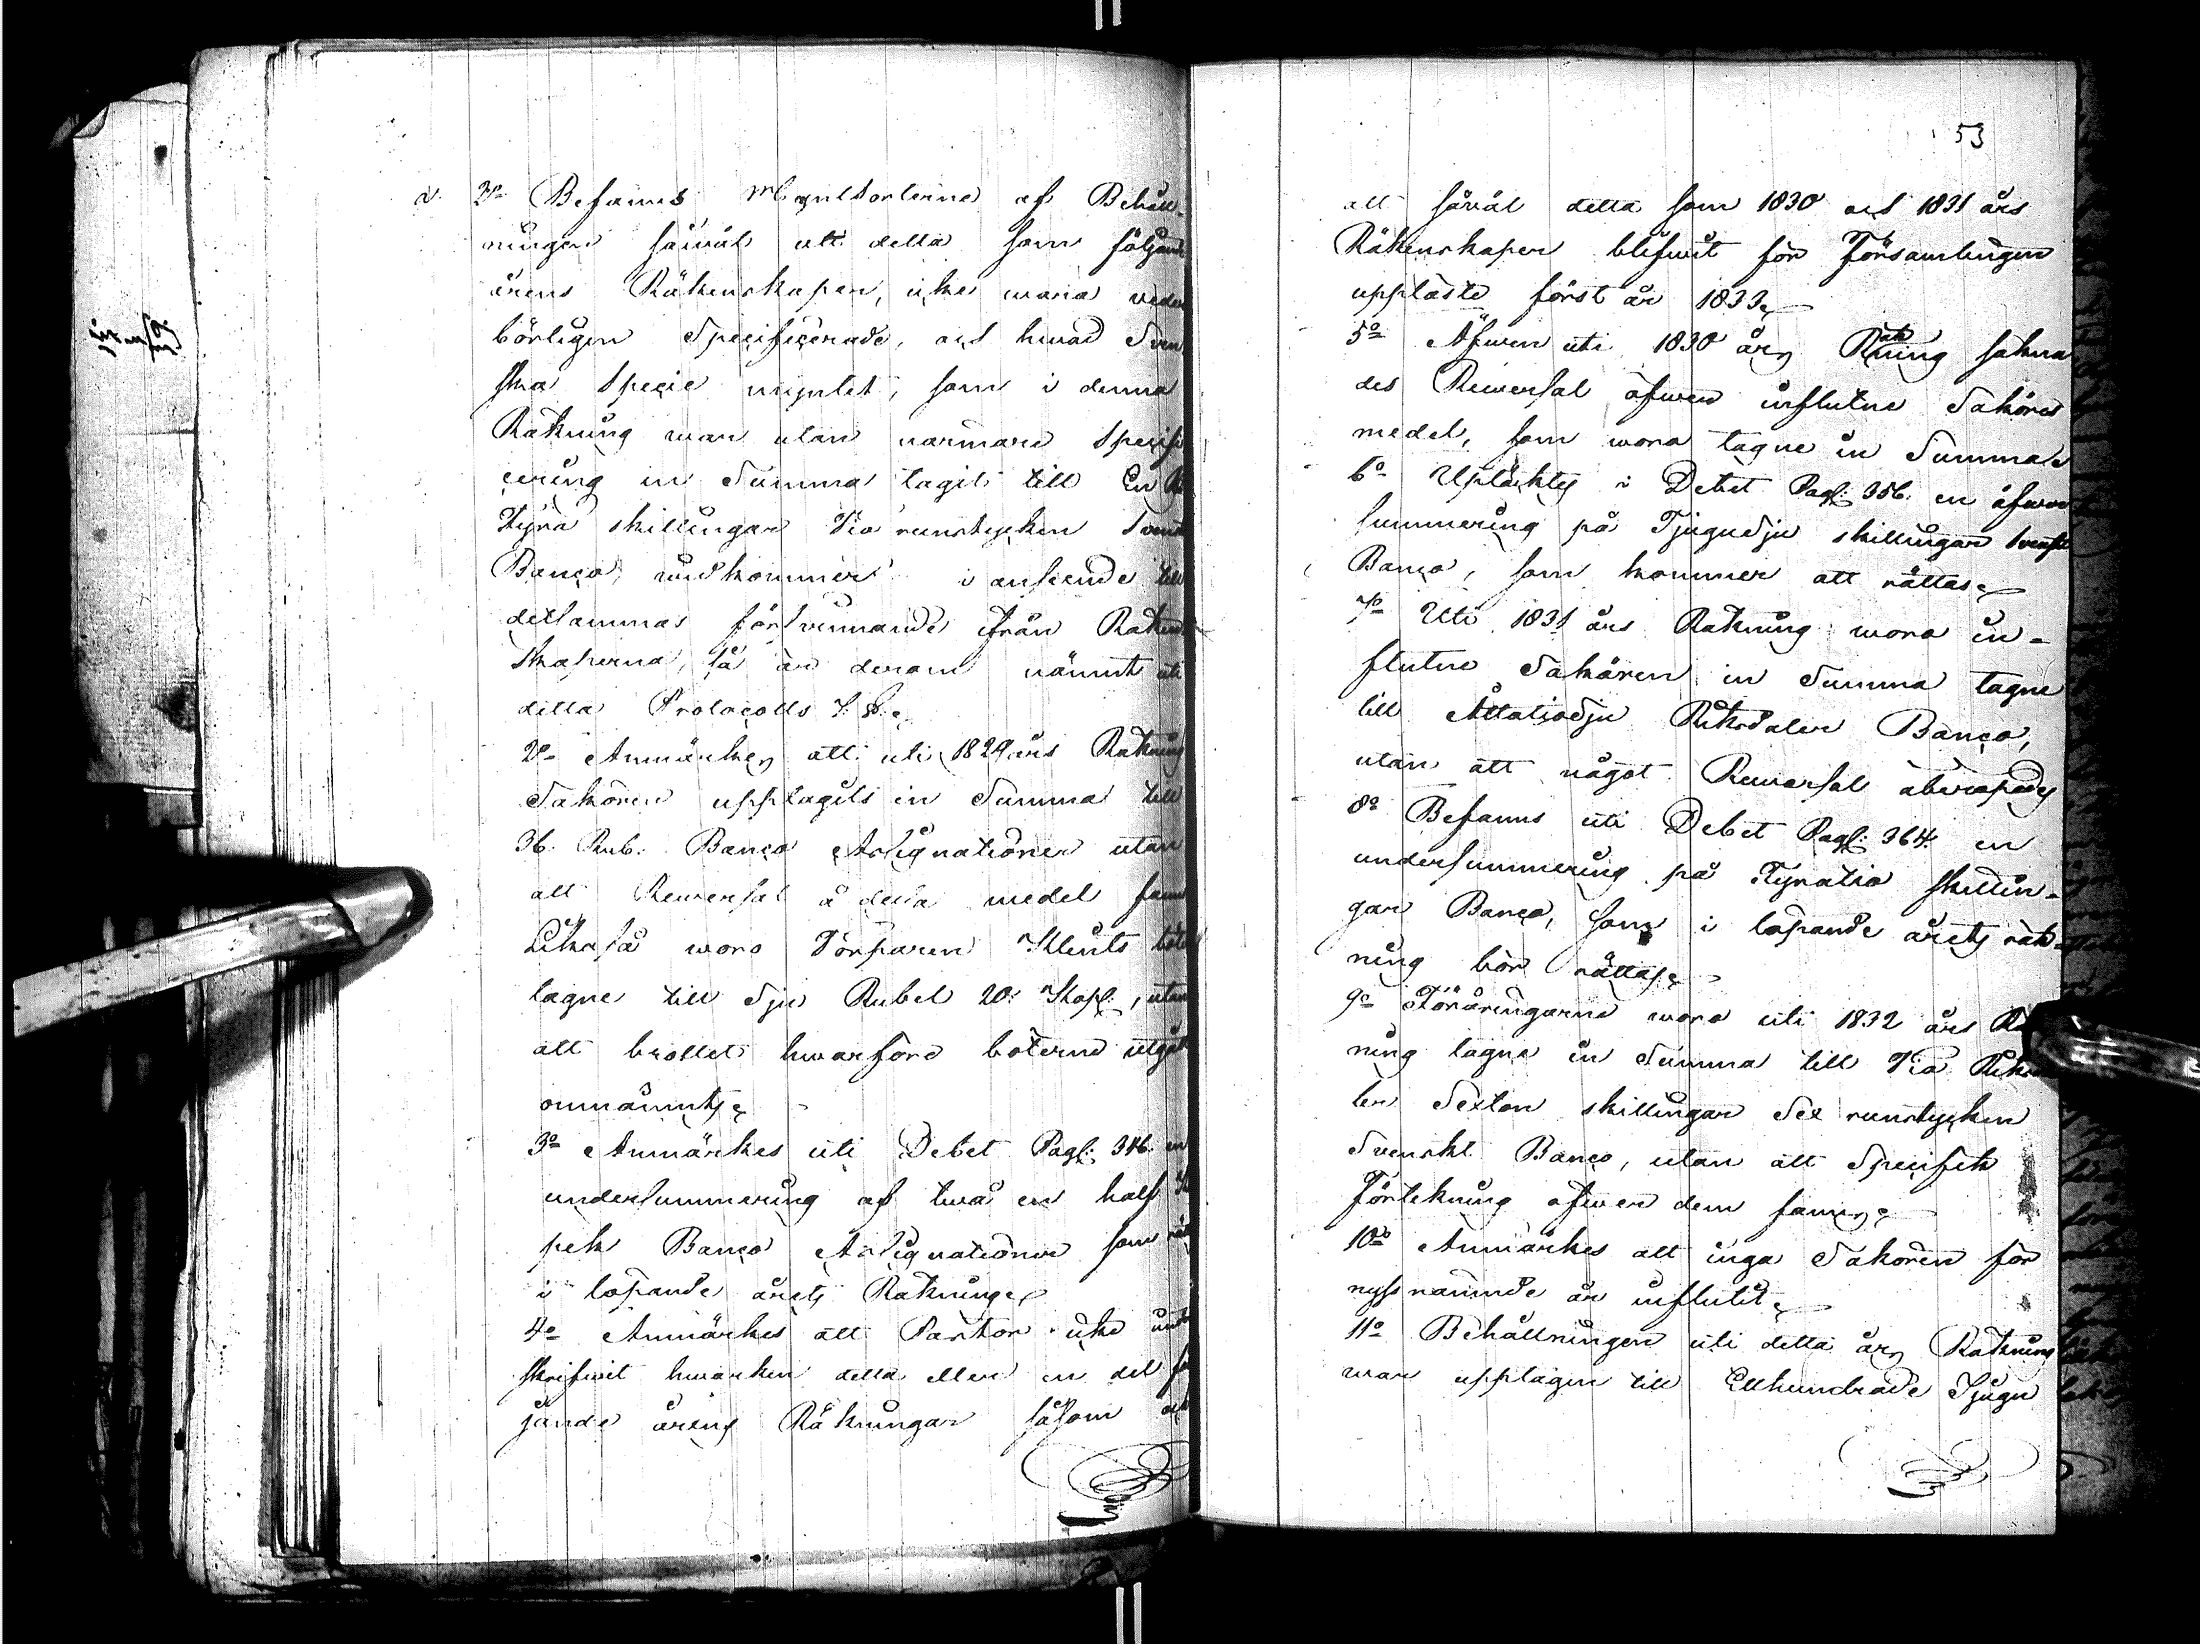 3o Befanns Myntsorterne af Behåll-
ningen såwäl uti detta som följande
årens Räkenskaper, icke wara veder
börligen Specificerade, och hwad Swen
ska Specie myntet, som i denna
Räkning war utan närmare Specifi
cering in Summa tagit till En
Fyra skillingar Tio runstycken Swenskt
Banco, widkommer i anseende till
detsammas försvinnande ifrån Räken
skaperna, så är derom nämnt uti
detta Protocolls
2o Anmärkes att uti 1829 års Räkning
Sakören upptagits in Summa till
36. Rub. Banco Assignationer utan
att Reversal å detta medel fanns
Likaså woro Torparen Klints böter
tagne till Sju Rubel 20. Kop:, utan
att brottet hwarföre böterne utgått
omnämnts
3o Anmärkes uti Debet Pag: 346. en
undersummering af twå en half Ko
pek Banco Assignationer som rättas
i löpande årets Räkning
4o Anmärkes att Pastor icke under
skrifwit hwarken detta eller en del föl
jande årens Räkningar såsom och
53
att såwäl detta som 1830 och 1831 års
Räkenskaper blifwit för Församlingen
uppläste först år 1833
5o Äfwen uti 1830 års Räkning sakna
des Reversal öfwer influtne Saköres
medel, som woro tagne in Summa
6o Uptäcktes i Debet Pag: 356. en öfwer
summering på Tjugusju skillingar Svenskt
Banco, som kommer att rättas
7o Uti 1831 års Räkning woro in-
flutne Sakören in Summa tagne
till Åttatiosju Riksdaler Banco,
utan att något Reversal åberopades
8o Befanns uti Debet Pag: 364. en
undersummering på Fyratio skillin-
gar Banco, som i löpande årets räk-
ning bör rättas
9o Föräringarne woro uti 1832 års Räk
ning tagne in Summa till Tio Riksda
ler Sexton skillingar Sex runstycken
Svenskt Banco, utan att Specifik
Förtekning öfwer dem fanns
10o Anmärkes att inga Sakören för
nyssnämnde år influtit
11o Behållningen uti detta års Räkning
war upptagen till Etthundrade Tjugu